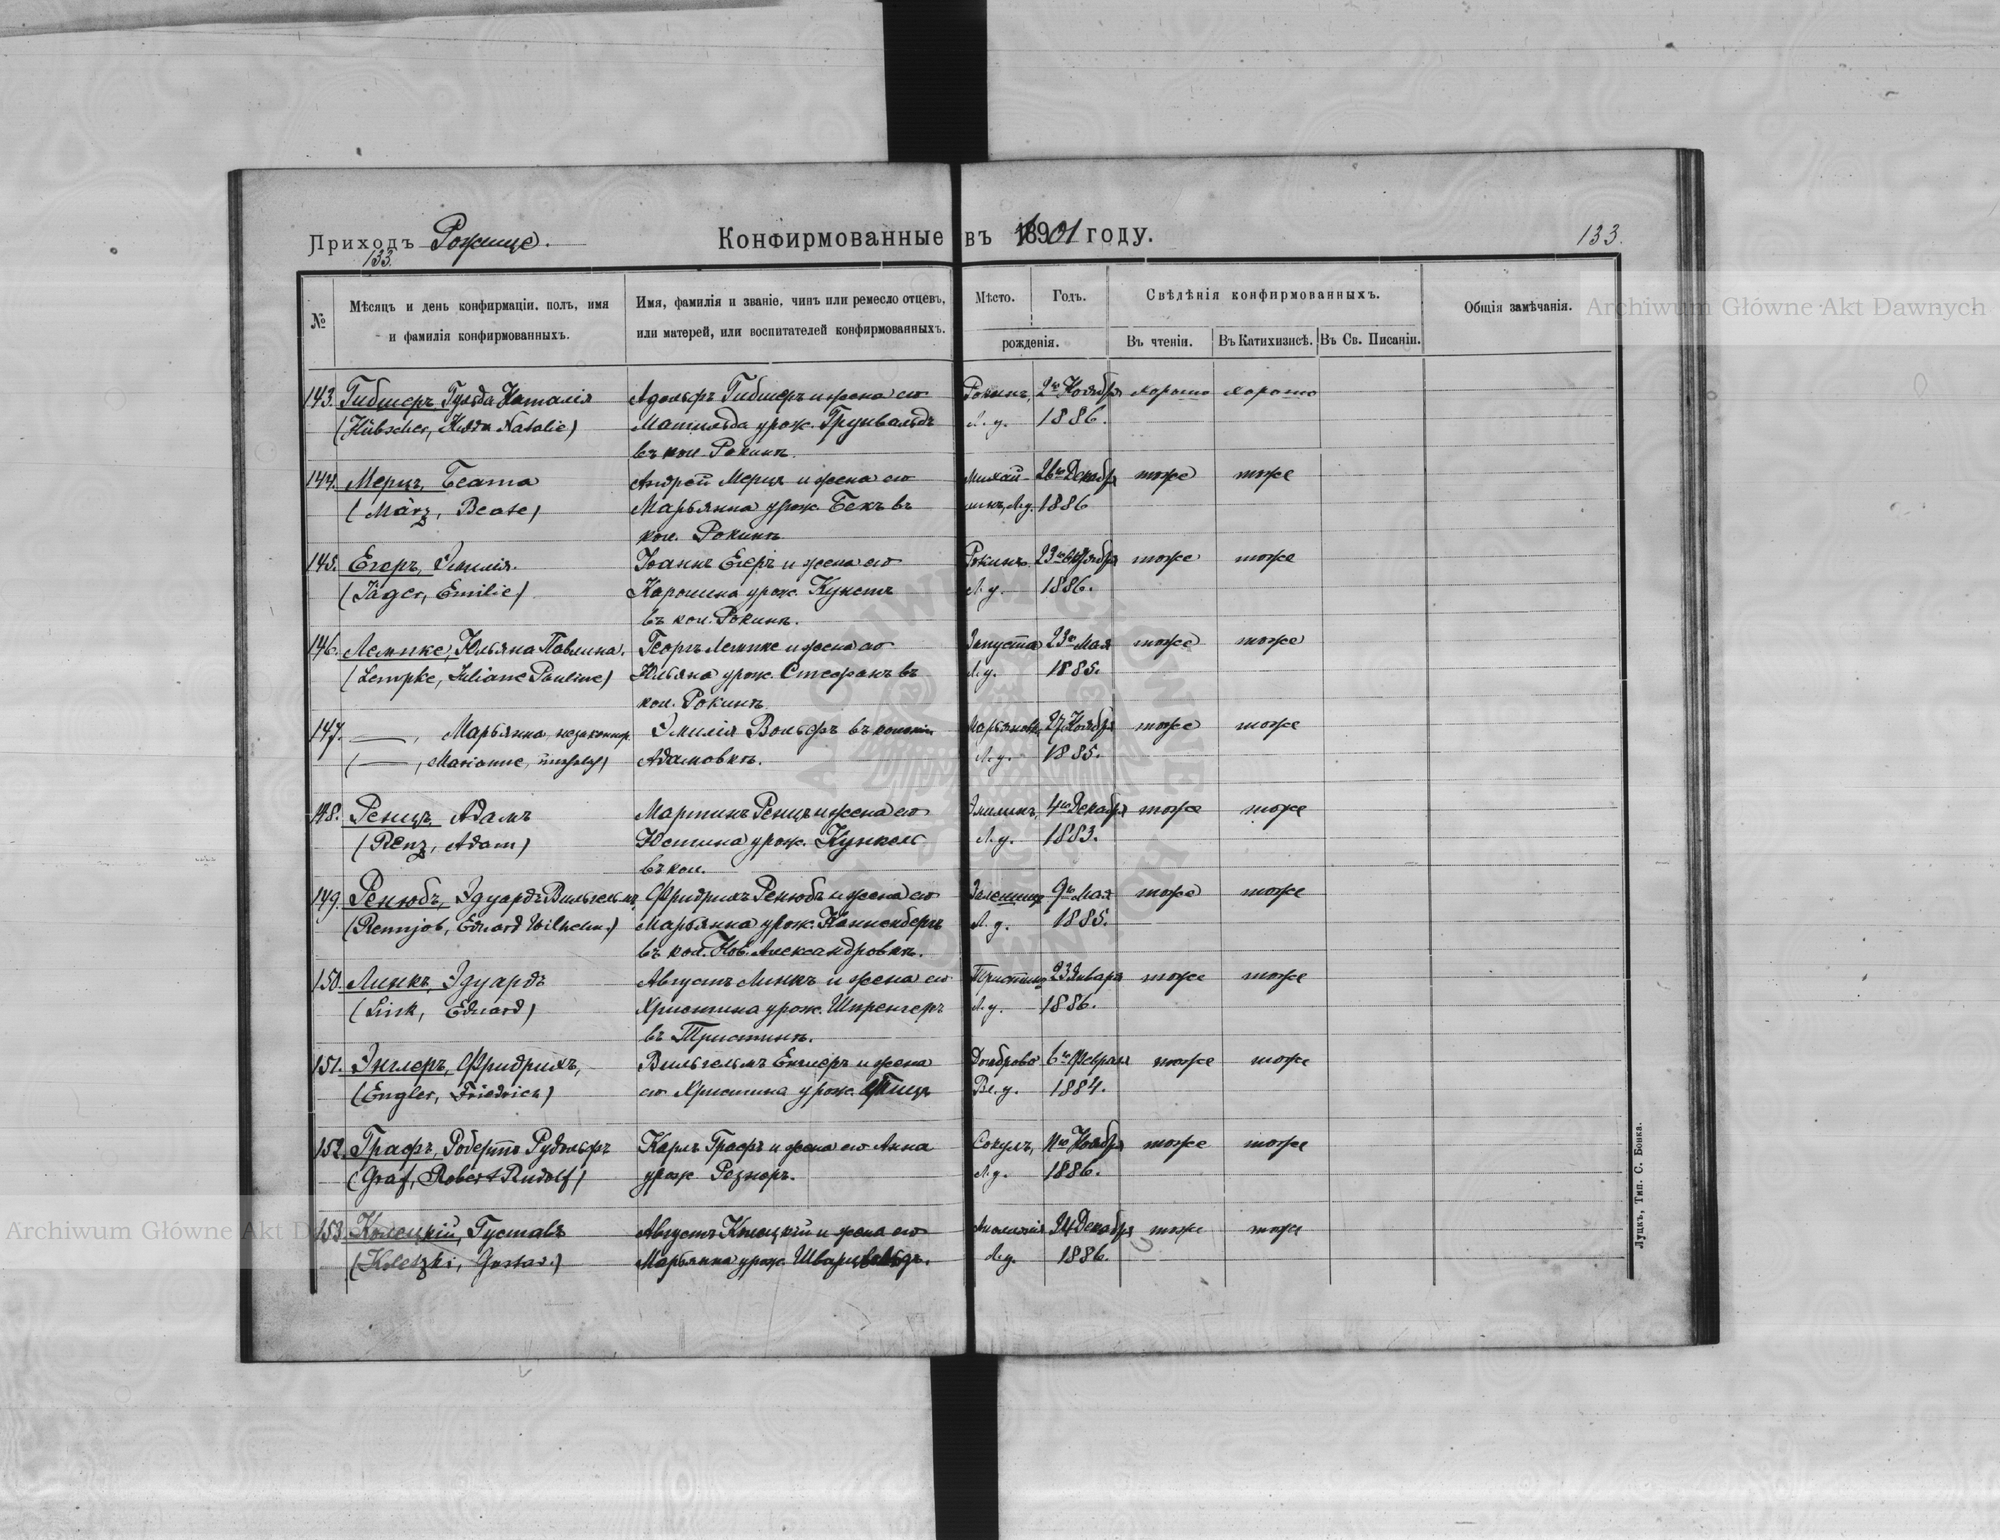 Приходъ Рожище.
133.
Конфирмованные въ 1901 году.
133.
№
Мѣсяцъ и день конфирмаціи, полъ, имя
и фамилія конфирмованныхъ.
Имя, фамилія и званіе, чинъ или ремесло отцевъ,
или матерей, или воспитателей конфирмованныхъ.
Мѣсто.
Годъ.
рожденія.
Свѣдѣнія конфирмованныхъ.
Въ чтеніи.
Въ Катихизисѣ.
Въ Св. Писаніи.
Общія замѣчанія.
Archiwum Główne Akt Dawnych
143. Гибшеръ, Гульда Наталія Адольфъ Гибшеръ и жена его Рокинъ, 2го Ноября хорошо хорошо
(Hübscher, Hulda Natalie) Матильда урож. Грунвальдъ Л. у. 1886.
въ кол. Рокинъ.
144. Мерцъ, Беата Андрей Мерцъ и жена его 26го Декабр тоже тоже
(März, Beate) Марьянна урож. Бекъ въ Л. у. 1886
кол. Рокинъ
145. Егеръ, Эмилія. Іоаннъ Егеръ и жена его Рокинъ тоже тоже
(Jäger, Emilie) Каролина урож. Кунстъ Л. у. 1886.
въ кол. Рокинъ.
146. Лемпке, Юльяна Павлина. Георгъ Лемпке и жена его Запуста 23го Мая тоже тоже
(Lempke, Juliane Pauline) Юльяна урож. Стефанъ въ Л. у. 1885.
кол. Рокинъ
147. —, Марьянна, Эмилія Вольфъ въ колоніи 27 Ноября тоже тоже
(—, Marianne, Адамовкѣ. Л. у. 1885.
148. Ренцъ, Адамъ Мартинъ Ренцъ и жена его 4го Декабря тоже тоже
(Renz, Adam) Юстина урож. Кункель Л. у. 1883.
въ кол.
149. Ренюбъ, Эдуардъ Вильгельмъ Фридрихъ Ренюбъ и жена его 9го Мая тоже тоже
(Rennjob, Eduard Wilhelm.) Марьянна урож. Канненбергъ Л. у. 1885.
въ кол. Нов. Александровкѣ.
150. Линкъ, Эдуардъ Августъ Линкъ и жена его 23 Января тоже тоже
(Link, Eduard) Христина урож. Шпренгеръ Л. у. 1886.
въ Тристинѣ.
151. Энглеръ, Фридрихъ, Вильгельмъ Енглеръ и жена Домброво 6го Февраля тоже тоже
(Engler, Friedrich) его Христина урож. Вл. у. 1884.
152. Графъ, Робертъ Рудольфъ Карлъ Графъ и жена его Анна Сокулъ, 11го Ноября тоже тоже
(Graf, Robert Rudolf) урож. Резнеръ. Л. у. 1886.
153. Колецкій, Густавъ Августъ Колецкій и жена его 24 Декабря тоже тоже
(Koletzki, Gustav.) Марьянна урож. Л. у. 1886.
Луцкъ, Тип. С. Бонка.
Archiwum Główne Akt Dawnych